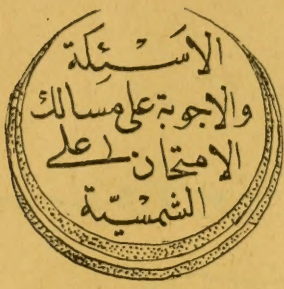 الاسئلة
والاجوبة على مسالك
الامتحان على
الشمسيّة